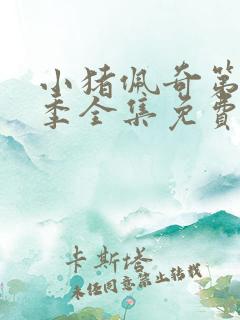 小猪佩奇第
季全集免费
卡斯塔
未经同意禁止转载